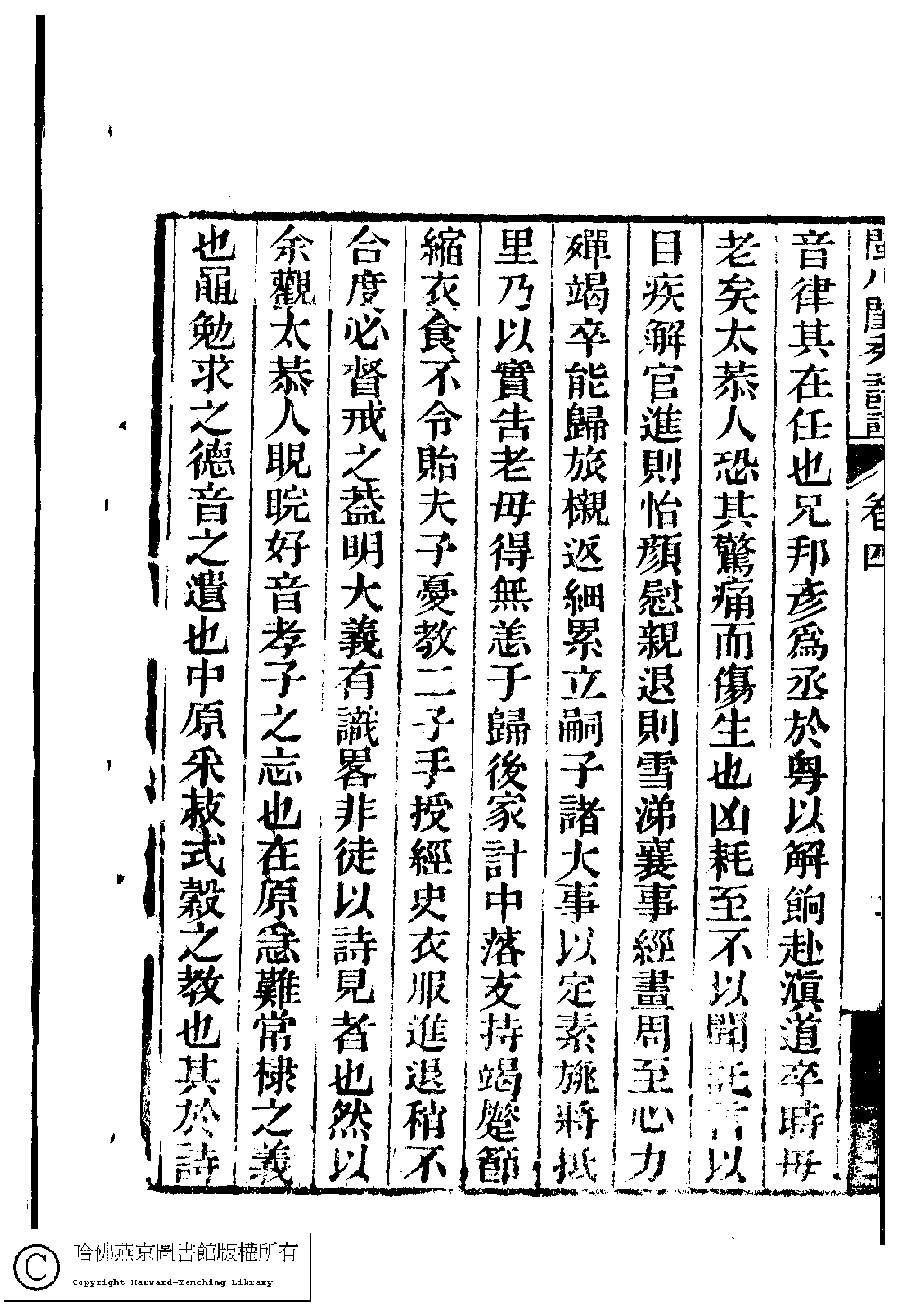 閨秀詩話 卷四
音律其在任也兄邦彥為丞於粵以解餉赴滇道卒時母
老矣太恭人恐其驚痛而傷生也凶耗至不以聞託言以
目疾解官進則怡顏慰親退則雪涕襄事經畫周至心力
殫竭卒能歸旅櫬返細累立嗣子諸大事以定素旐將抵
里乃以實告老母得無恙于歸後家計中落支持竭蹙節
縮衣食不令貽夫子憂教二子手授經史衣服進退稍不
合度必督戒之葢明大義有識畧非徒以詩見者也然以
余觀太恭人睍睆好音孝子之志也在原急難常棣之義
也黽勉求之德音之遺也中原采菽式穀之教也其於詩
哈佛燕京圖書館版權所有
Copyright Harvard-Yenching Library